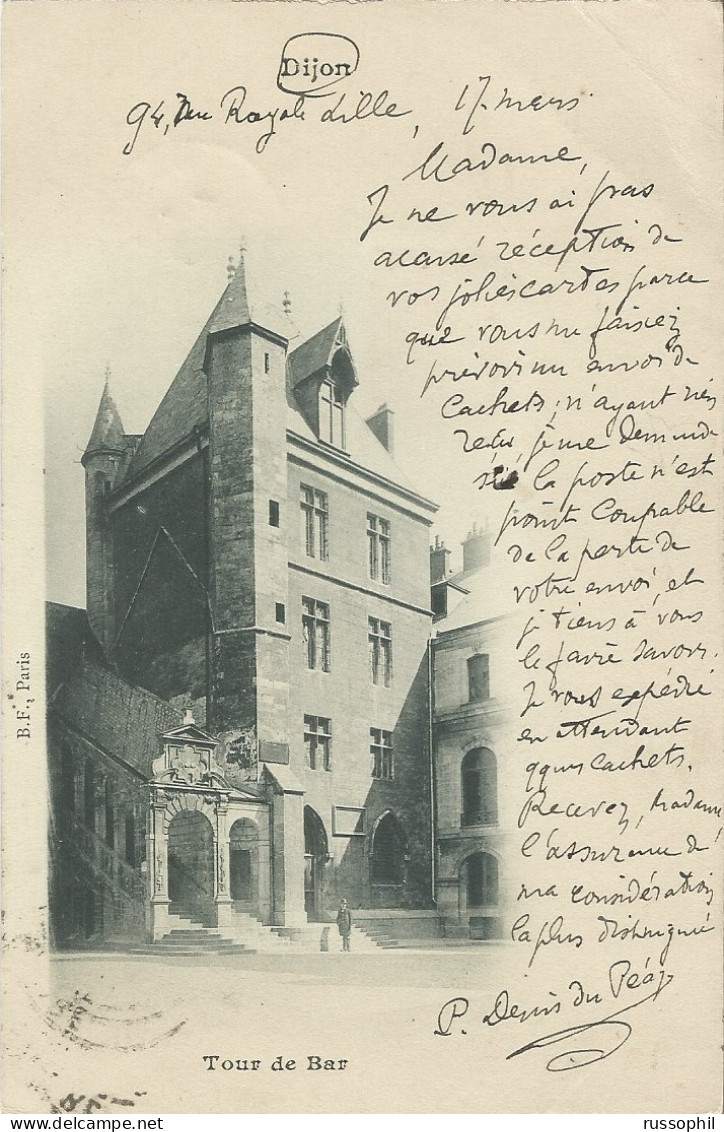 Dijon
94, Rue Royale Lille, 17 mars
Madame,
Je ne vous ai pas
accusé réception de
vos jolies cartes parce
que vous me faisiez
prévoir un envoi de
cachets; n'ayant rien
reçu je me demande
si la poste n'est
point coupable
de la perte de
votre envoi, et
je tiens à vous
le faire savoir.
Je vous expédie
en attendant
qques cachets.
Recevez, Madame
l'assurance de
ma considération
la plus distinguée
P. Denis du Péage
B.F., Paris
Tour de Bar
russophil
www.delcampe.net